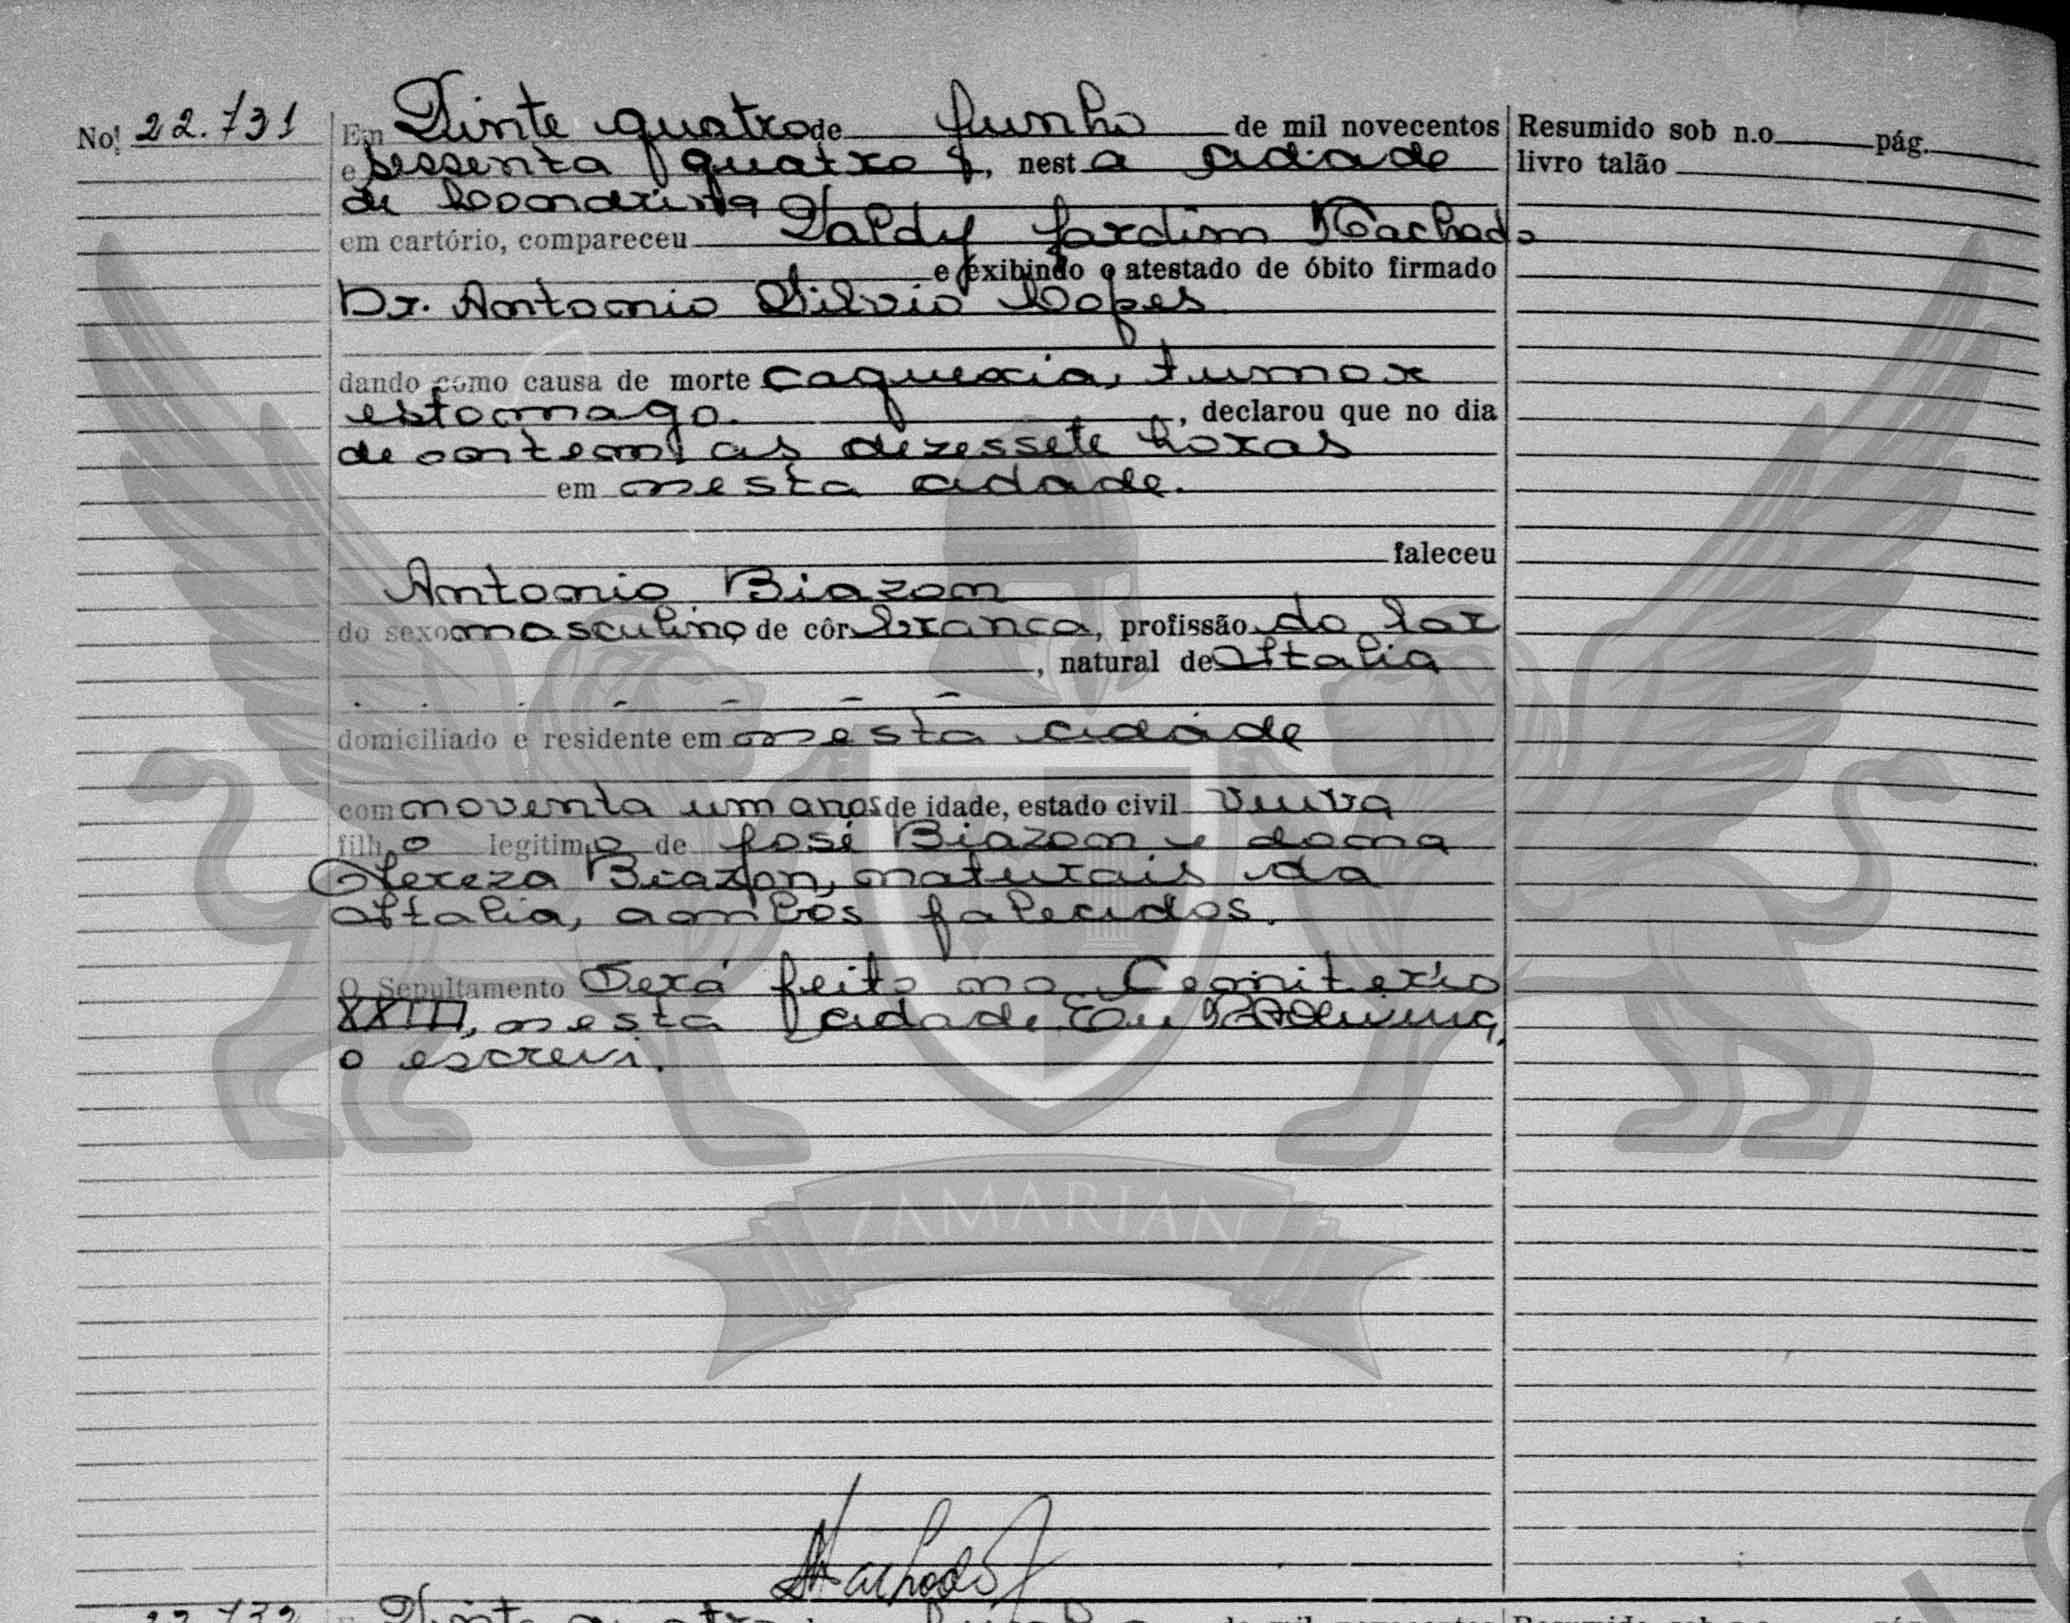 No. 22.731 Em Vinte quatro de Junho de mil novecentos Resumido sob n.o pág.
e sessenta quatro, nesta cidade livro talão
de Londrina
em cartório, compareceu Valdy Jardim Machado
e exibindo o atestado de óbito firmado
Dr. Antonio Silvio Lopes
dando como causa de morte caquexia, tumor
estomago. , declarou que no dia
de ontem as dezessete horas
em nesta cidade.
faleceu
Antonio Biazon
do sexo masculino de côr branca, profissão do lar
, natural de Italia
domiciliado e residente em nesta cidade
com noventa um anos de idade, estado civil viuva
filho legitimo de José Biazon e dona
Tereza Biazon, naturais da
Italia, ambos falecidos.
O Sepultamento Será feito no Cemiterio
XXIII, nesta cidade. Eu
o escrevi.
ZAMARIAN
Machado
22.732 Vinte quatro Junho de mil novecentos Resumido sob n.o pág.